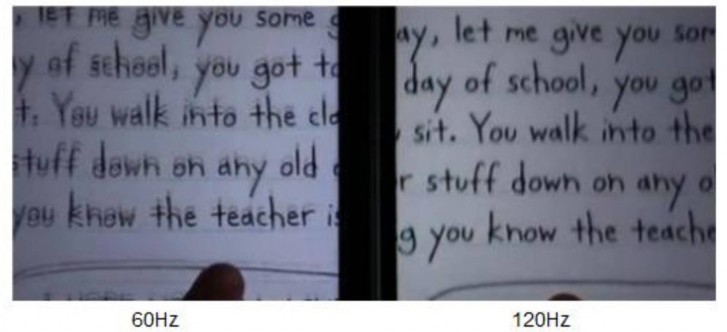 , let me give you some
y of school, you got to
t. You walk into the cla
stuff down on any old
you know the teacher is
ay, let me give you som
day of school, you got
sit. You walk into the
r stuff down on any o
g you know the teache
60Hz
120Hz